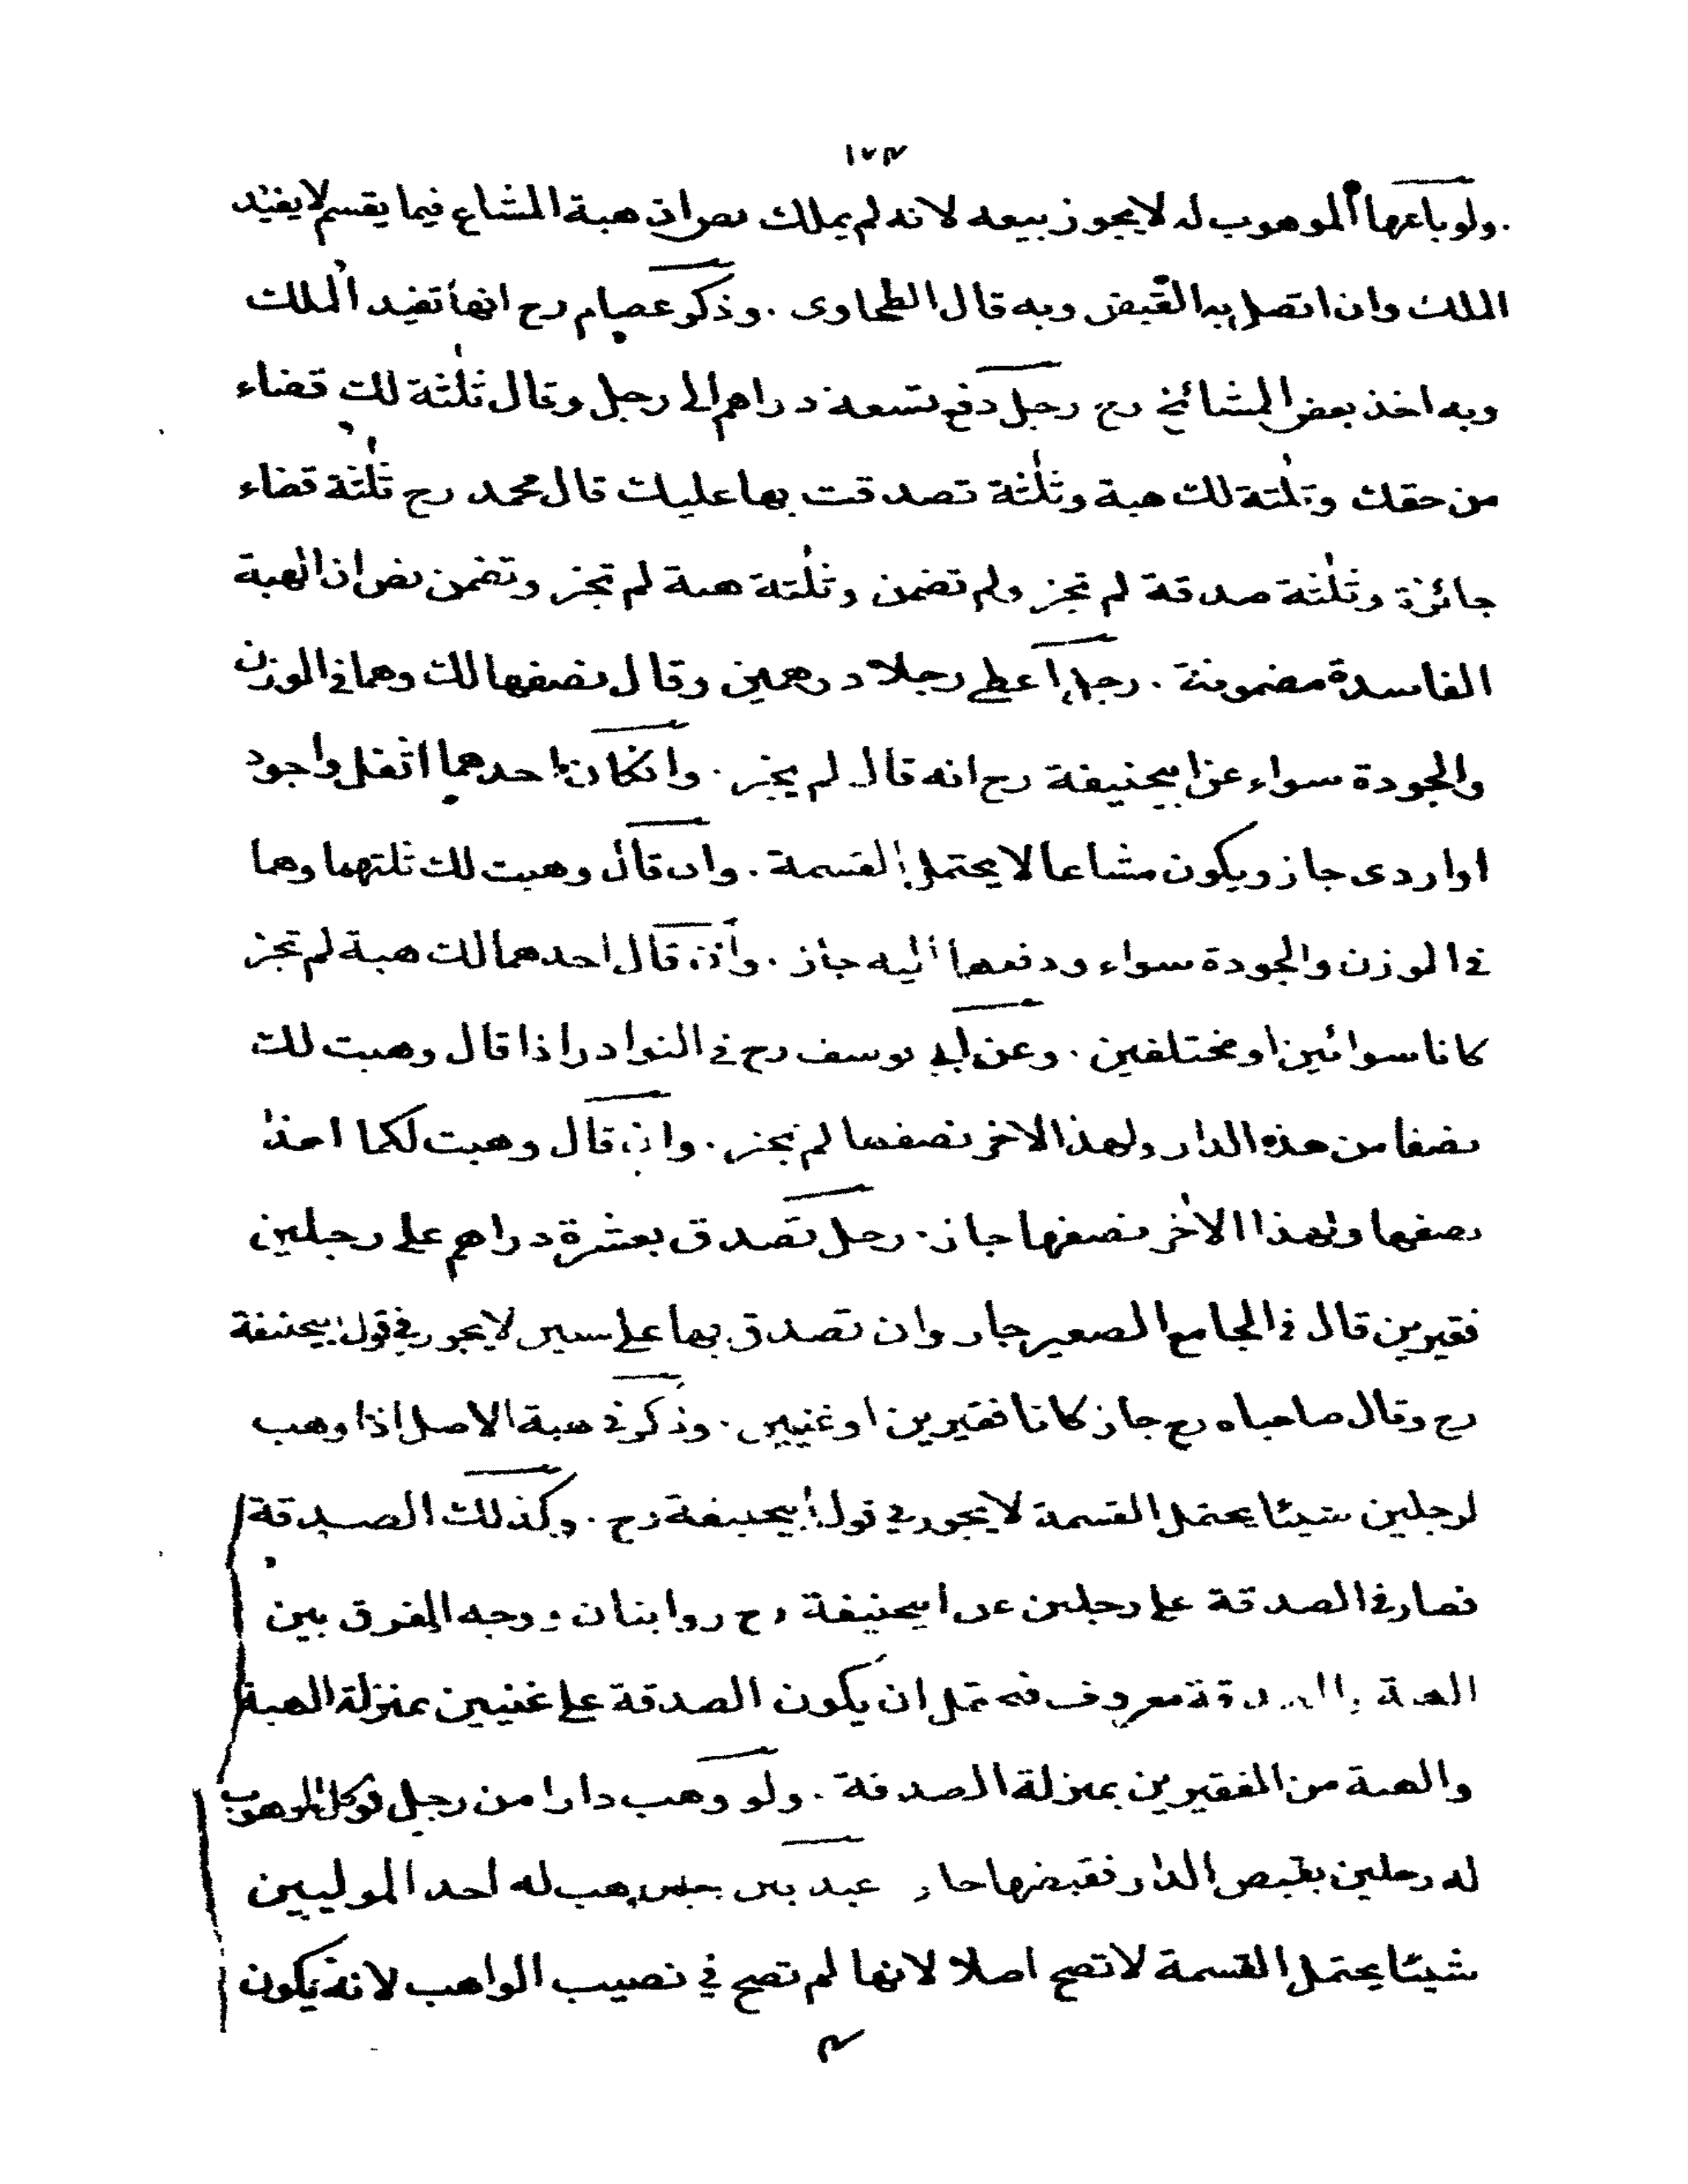 ١٧٣
ولو باعها الموهوب له لا يجوز بيعه لانه لم يملك نص ان هبة المشاع فيما يقسم لا يفيد
الملك وان اتصل به القبض وبه قال الطحاوى . وذكر عصام رح انها تفيد الملك
وبه اخذ بعض المشائخ رح رجل دفع تسعة دراهم الى رجل وقال ثلٰثة لك قضاء
من حقك وثلٰثة لك هبة وثلٰثة تصدقت بها عليك قال محمد رح ثلٰثة قضاء
جائزة وثلٰثة صدقة لم تجز ولم تضمن وثلٰثة هبة لم تجز وتضمن نص ان الهبة
الفاسدة مضمونة . رجل اعطى رجلا درهمين وقال نصفها لك وهما فى الوزن
والجودة سواء عن ابيحنيفة رح انه قال لم يجز . وانكان احدهما اثقل واجود
او اردى جاز ويكون مشاعا لا يحتمل القسمة . وان قال وهبت لك ثلثهما وهما
فى الوزن والجودة سواء ودفعها اليه جاز . وان قال احدهما لك هبة لم تجز
كانا سوائين او مختلفين . وعن ابى يوسف رح فى النوادر اذا قال وهبت لك
نصفا من هذه الدار ولهذا الاخر نصفها لم يجز . وان قال وهبت لكما هذا
نصفها ولهذا الاخر نصفها جاز . رجل تصدق بعشرة دراهم على رجلين
فقيرين قال فى الجامع الصغير جاز وان تصدق بها على لا يجوز فى قول ابيحنيفة
رح وقال صاحباه رح جاز كانا فقيرين او غنيين . وذكر فى هبة الاصل اذا وهب
لرجلين شيئا يحتمل القسمة لا يجوز فى قول ابيحنيفة رح . وكذلك الصدقة
فصار فى الصدقة على رجلين عن ابيحنيفة رح روايتان ووجه الفرق بين
الهبة والصدقة معروف فيحتمل ان يكون الصدقة على غنيين بمنزلة الهبة
والهبة من الفقيرين بمنزلة الصدقة . ولو وهب دارا من رجل فوكل الموهوب
له رجلين بقبض الدار فقبضها جاز عبد بين رجلين وهب له احد الموليين
شيئا يحتمل القسمة لا تصح اصلا لانها لم تصح فى نصيب الواهب لانه يكون